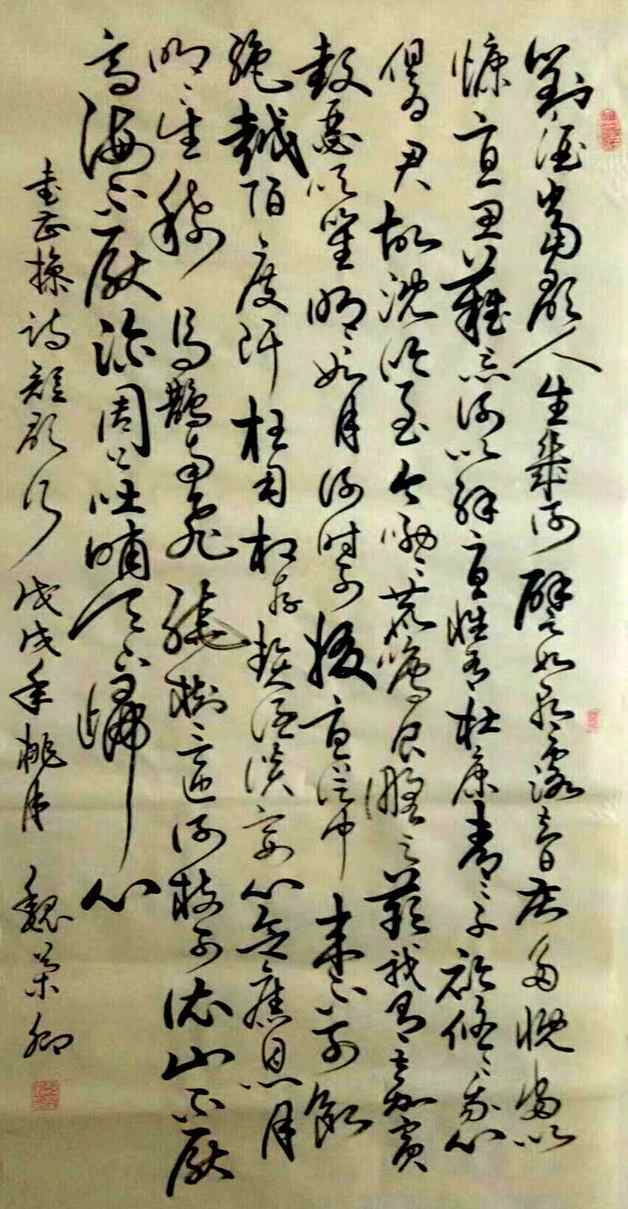 對酒當歌人生幾何譬如朝露去日苦多慨當以
慷憂思難忘何以解憂惟有杜康青青子衿悠悠我心
但為君故沈吟至今呦呦鹿鳴食野之蘋我有嘉賓
鼓瑟吹笙明明如月何時可掇憂從中來不可斷
絕越陌度阡枉用相存契闊談宴心念舊恩月
明星稀烏鵲南飛繞樹三匝何枝可依山不厭
高海不厭深周公吐哺天下歸心
書曹操詩短歌行 戊戌年桃月 魏榮卿